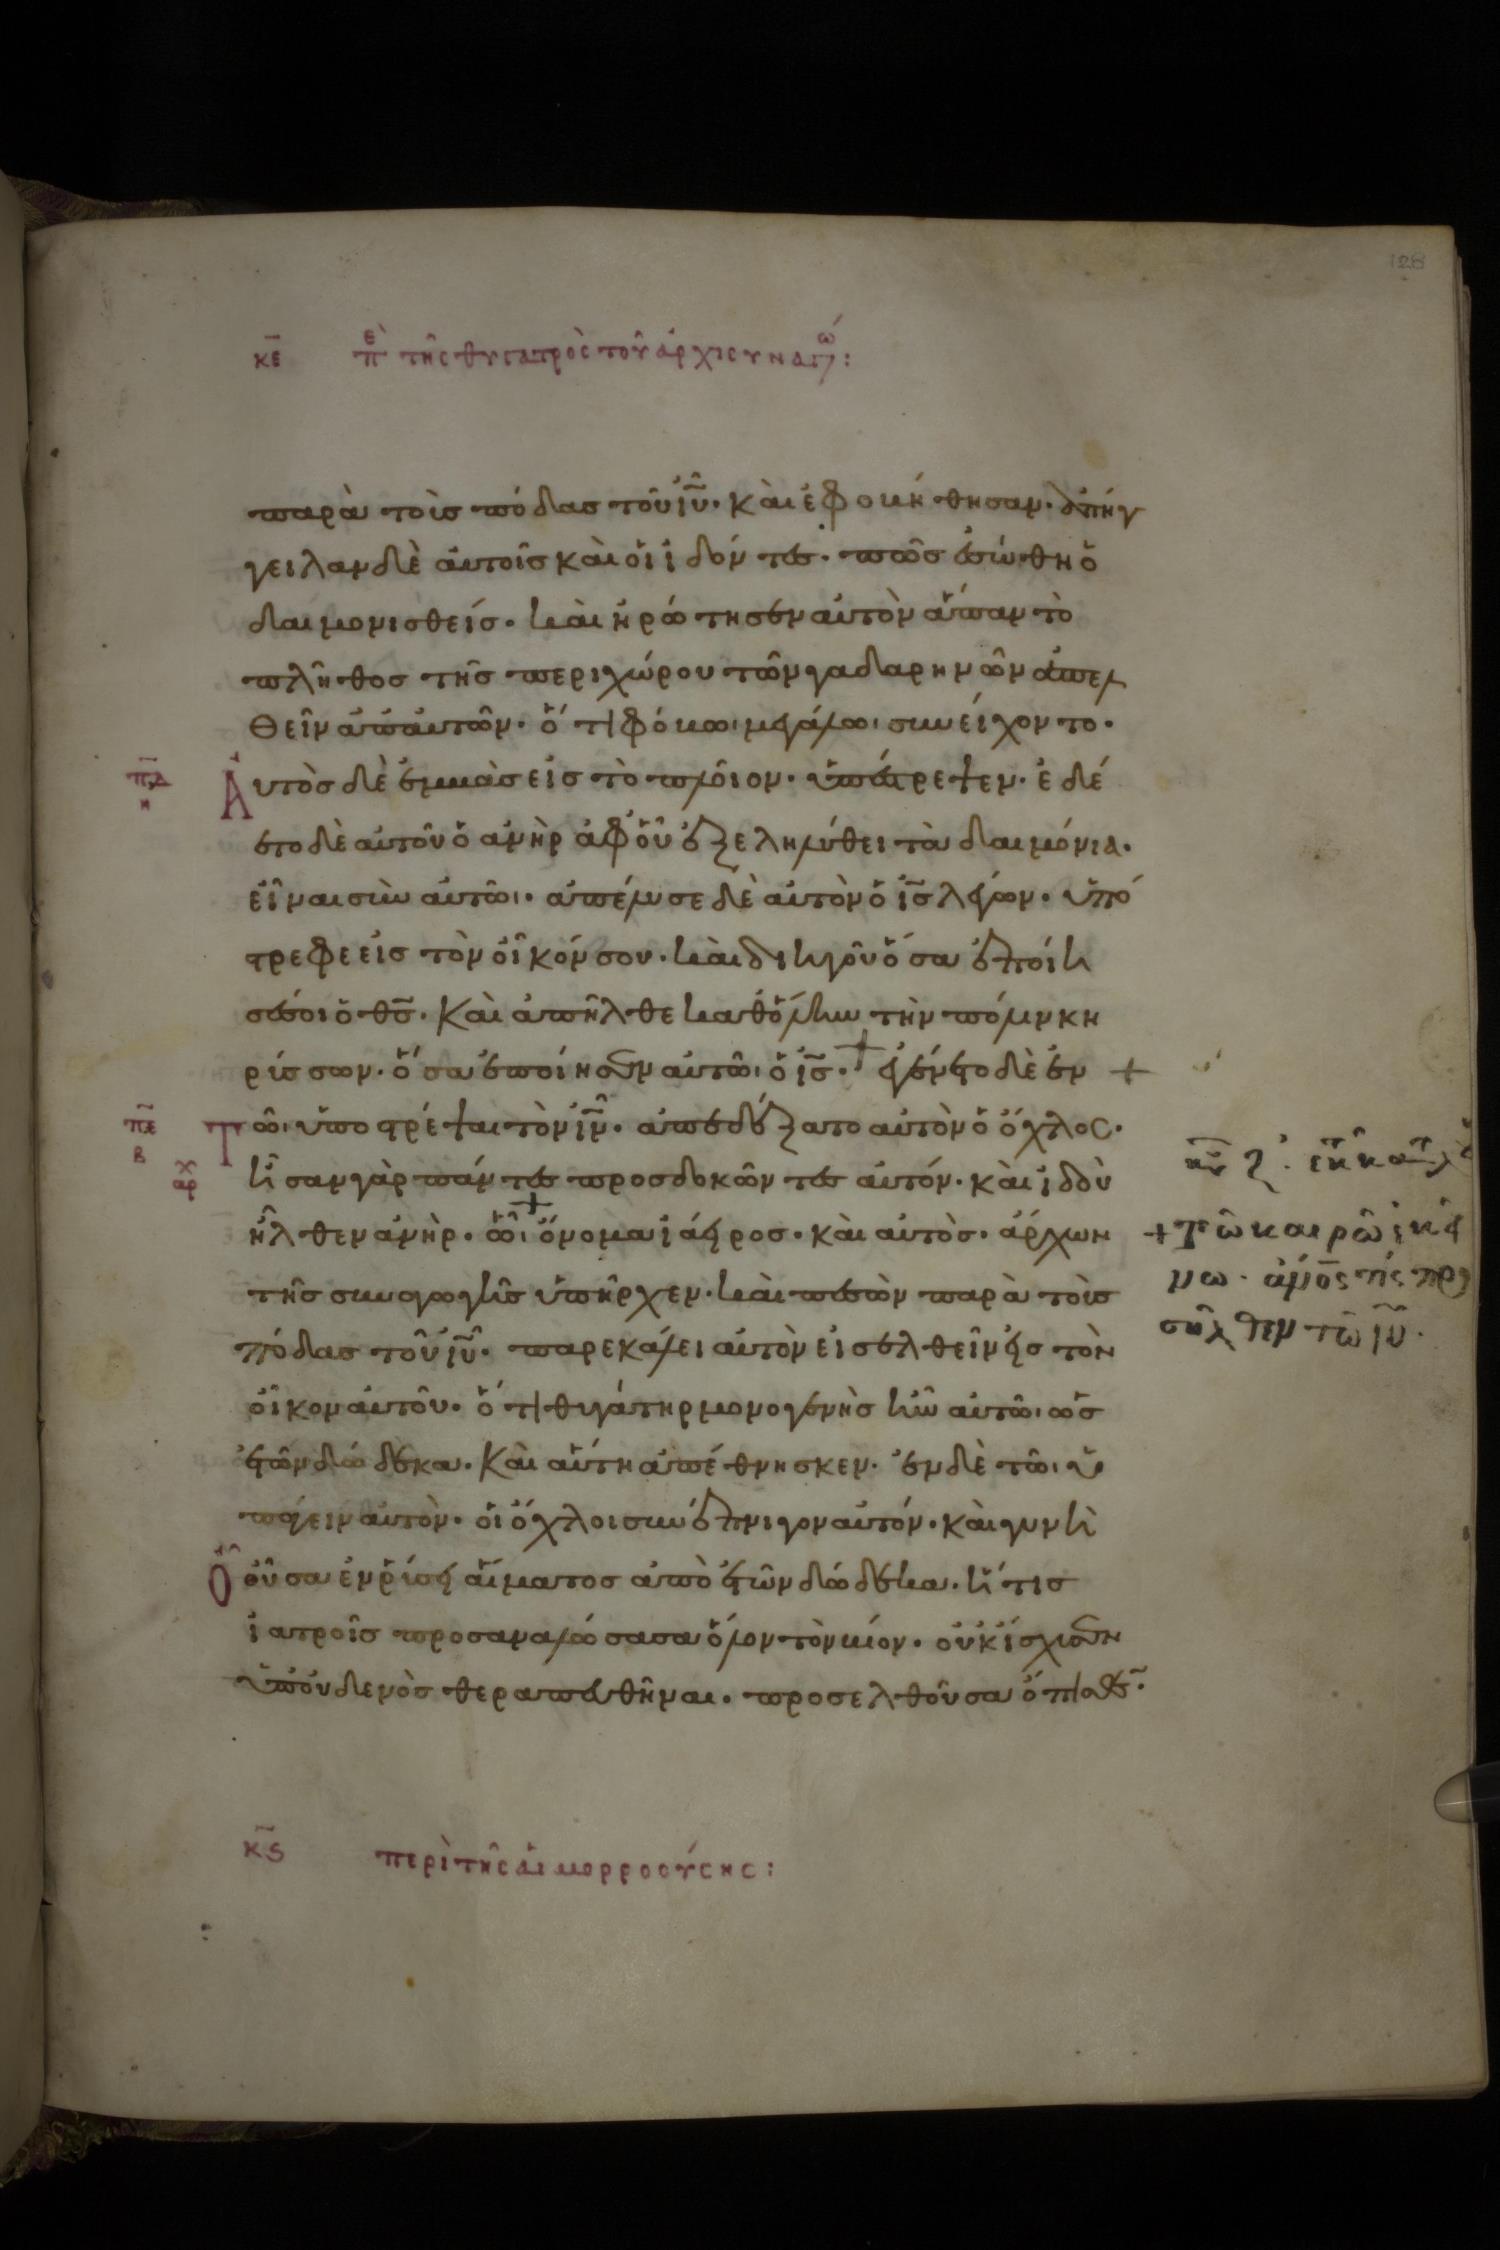 128
κε περὶ τῆς θυγατρὸς τοῦ ἀρχισυναγώ:
παρὰ τοὺς πόδας τοῦ ἰῦ. καὶ ἐφοβήθησαν. ἀπήγ
γειλαν δὲ αὐτοῖς καὶ οἱ ἰδόντες. πῶς ἐσώθη ὁ
δαιμονισθείς. καὶ ἠρώτησεν αὐτὸν ἅπαν τὸ
πλῆθος τῆς περιχώρου τῶν γαδαρηνῶν ἀπελ
θεῖν ἀπ' αὐτῶν. ὅτι φόβωι μεγάλωι συνείχοντο.
πδ η Αὐτὸς δὲ ἐμβὰς εἰς τὸ πλοῖον. ὑπέστρεψεν. ἐδέ
ετο δὲ αὐτοῦ ὁ ἀνὴρ ἀφ' οὗ ἐξεληλύθει τὰ δαιμόνια.
εἶναι σὺν αὐτῶι. ἀπέλυσε δὲ αὐτὸν ὁ ἰς λέγων. ὑπό
στρεφε εἰς τὸν οἶκόν σου. καὶ διηγοῦ ὅσα ἐποίη
σέ σοι ὁ θς. καὶ ἀπῆλθε καθ' ὅλην τὴν πόλιν κη
ρύσσων. ὅσα ἐποίησεν αὐτῶι ὁ ἰς. + ἐγένετο δὲ ἐν +
πε β Τῶι ὑποστρέψαι τὸν ἰν. ἀπεδέξατο αὐτὸν ὁ ὄχλος.
αρχ ἦσαν γὰρ πάντες προσδοκῶντες αὐτόν. καὶ ἰδοὺ
ἦλθεν ἀνὴρ. ὧι + ὄνομα ἰάειρος. καὶ αὐτὸς. ἄρχων
τῆς συναγωγῆς ὑπῆρχεν. καὶ πεσὼν παρὰ τοὺς
πόδας τοῦ ἰῦ. παρεκάλει αὐτὸν εἰσελθεῖν εἰς τὸν
οἶκον αὐτοῦ. ὅτι θυγάτηρ μονογενὴς ἦν αὐτῶι ὡς
ἐτῶν δώδεκα. καὶ αὕτη ἀπέθνησκεν. ἐν δὲ τῶι ὑ
πάγειν αὐτὸν. οἱ ὄχλοι συνέπνιγον αὐτόν. καὶ γυνὴ
Οοὖσα ἐν ῥύσει αἵματος ἀπὸ ἐτῶν δώδεκα. ἥτις
ἰατροῖς προσαναλώσασα ὅλον τὸν βίον. οὐκ ἴσχυσεν
ὑπ' οὐδενὸς θεραπευθῆναι. προσελθοῦσα ὄπισθε.
+ τῶ καιρῶ ἐκεί
νω. ἀνος τίς προ
σῆλθεν τῶ ἰυ.
κς περὶ τῆς αἱμορροούσης: